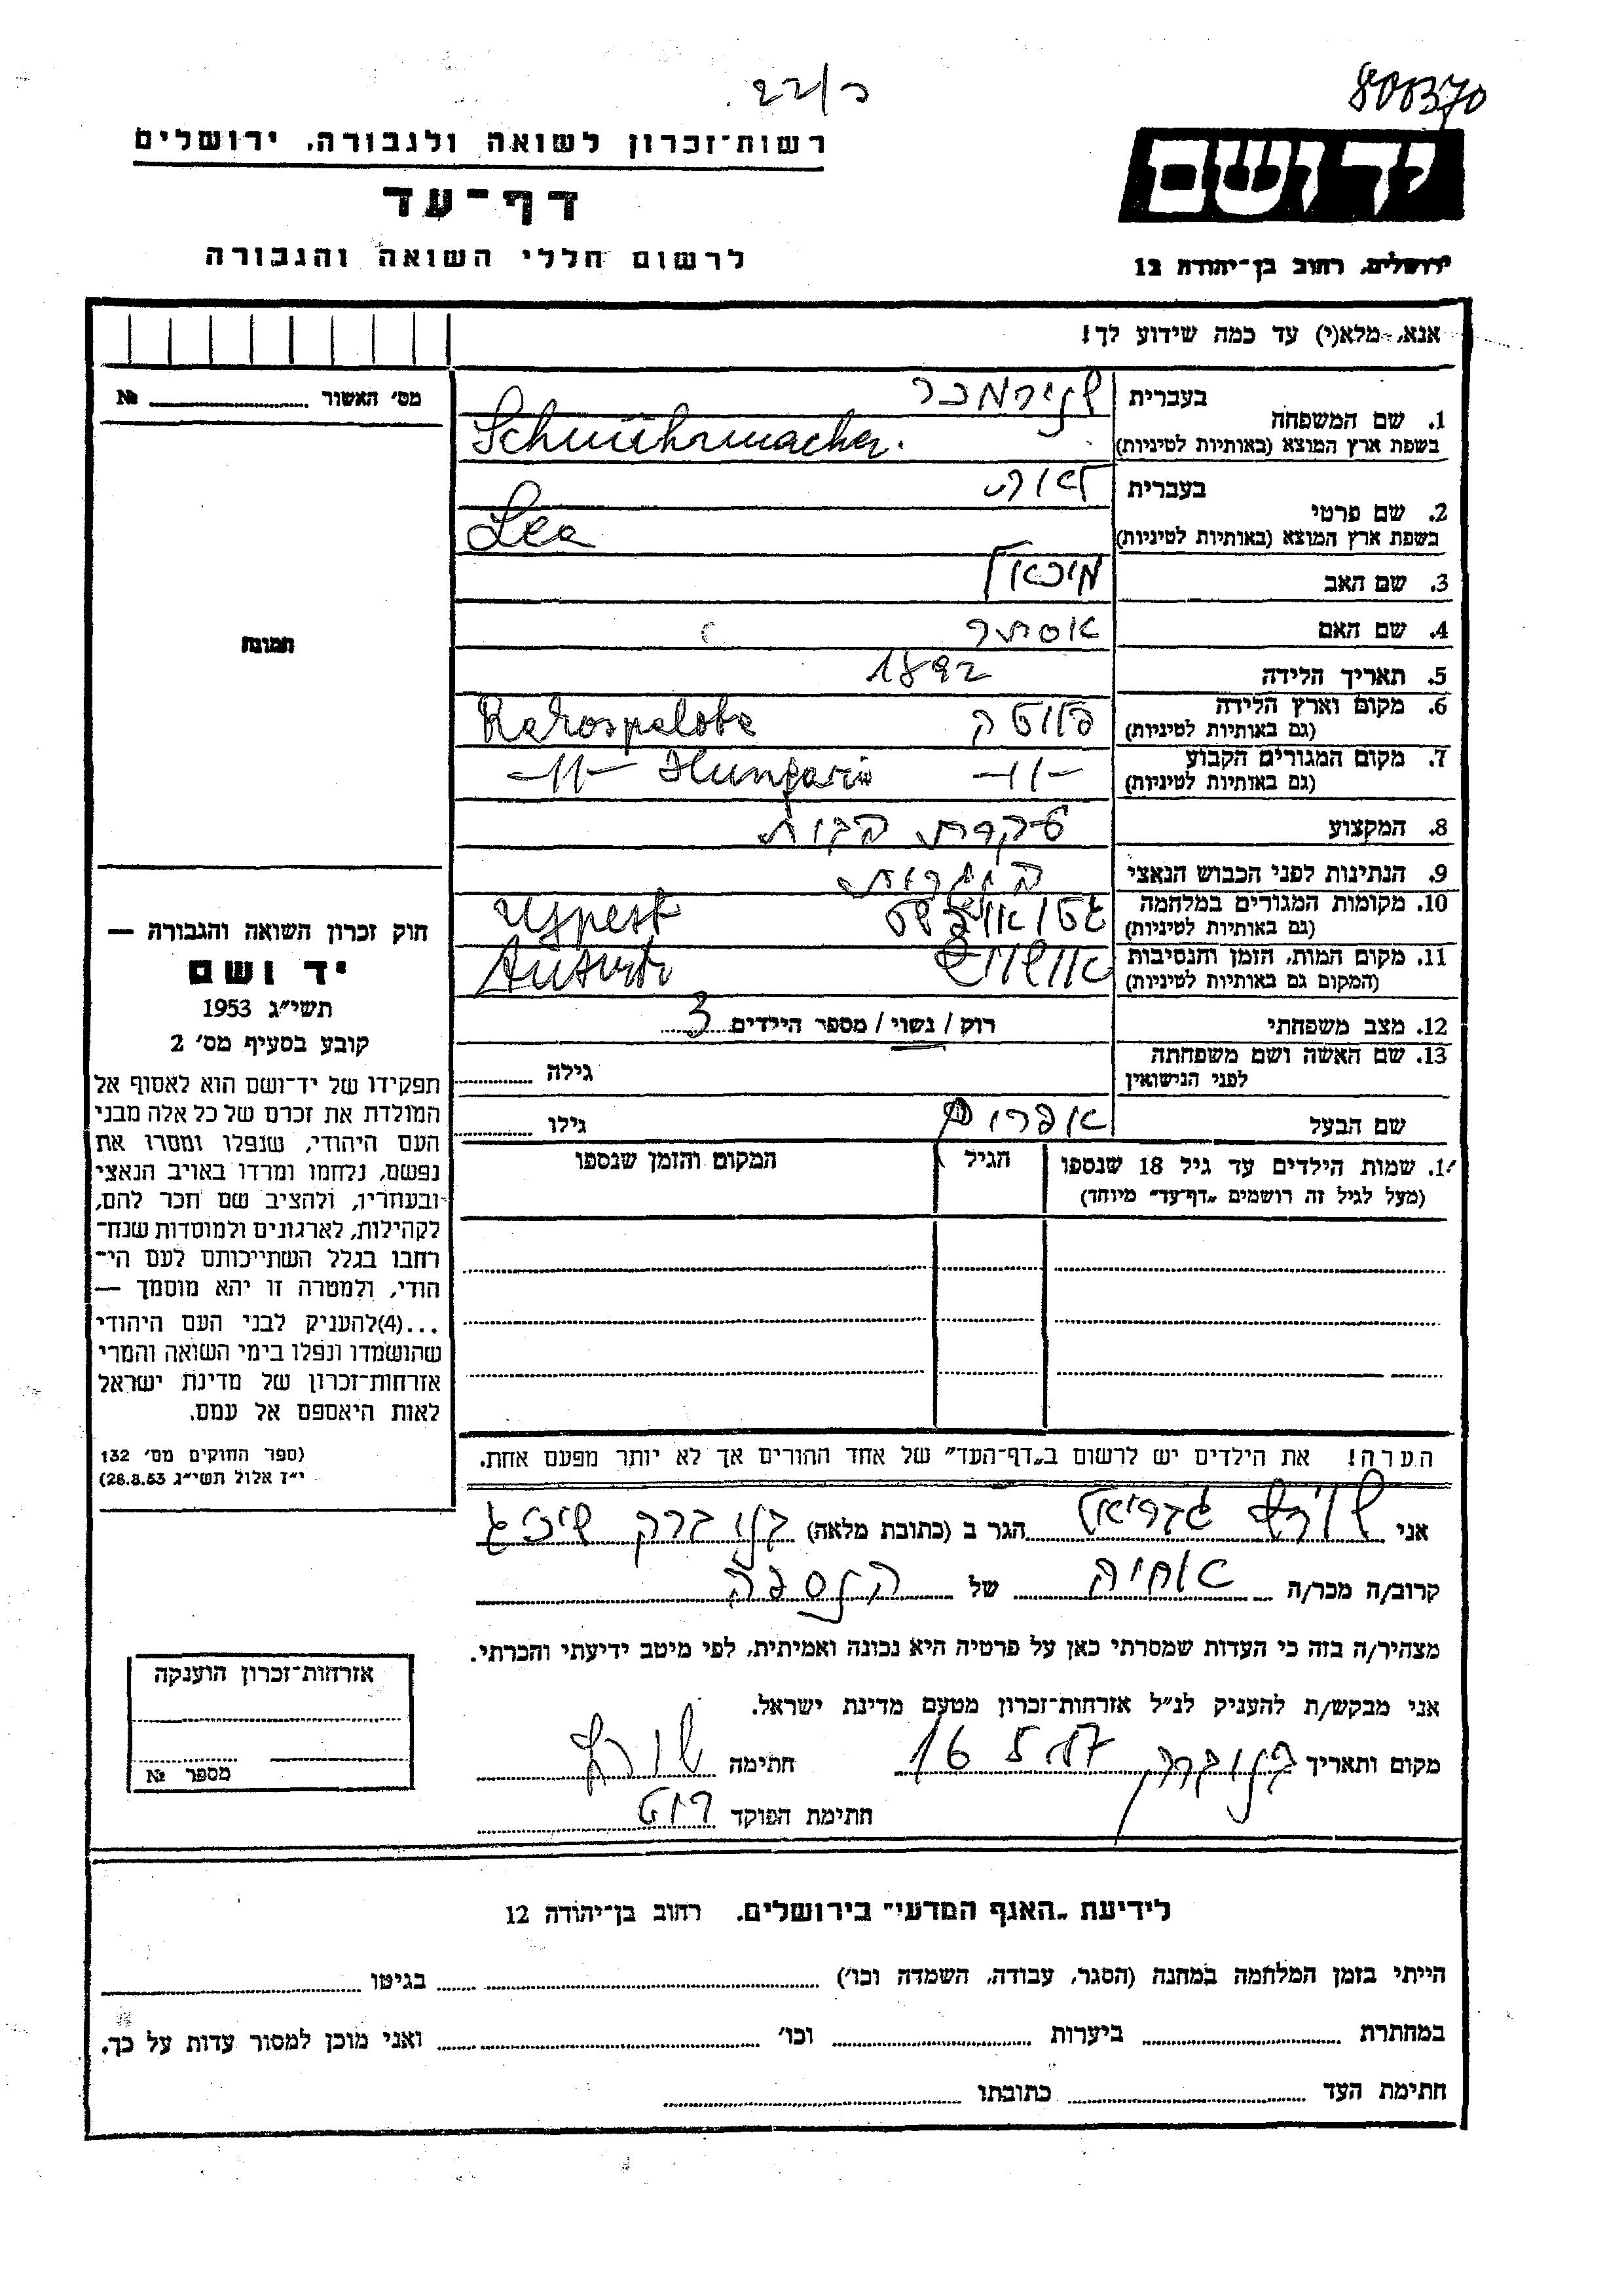 800370
כ/22
רשות־זכרון לשואה ולגבורה, ירושלים
דף־עד
לרשום חללי השואה והגבורה
יד ושם
ירושלים, רחוב בן־יהודה 12
אנא, מלא(י) עד כמה שידוע לך!
מס׳ האשור № 
1. שם המשפחה
בעברית שנירמכר
בשפת ארץ המוצא (באותיות לטיניות) Schnührmacher.
2. שם פרטי
בעברית לאה
בשפת ארץ המוצא (באותיות לטיניות) Lea
3. שם האב מיכאל
4. שם האם אסתר
5. תאריך הלידה 1892
6. מקום וארץ הלידה
(גם באותיות לטיניות) פלוטה Rakospalota
7. מקום המגורים הקבוע
(גם באותיות לטיניות) -11- -11- Hungaria
8. המקצוע עקרת הבית
9. הנתינות לפני הכבוש הנאצי הונגרית
10. מקומות המגורים במלחמה
(גם באותיות לטיניות) גטו אויפשט Ujpest
11. מקום המות, הזמן והנסיבות
(המקום גם באותיות לטיניות) אושויץ
12. מצב משפחתי רוק / נשוי / מספר הילדים 3
13. שם האשה ושם משפחתה
לפני הנישואין גילה
שם הבעל אפרים גילו
1. שמות הילדים עד גיל 18 שנספו
(מעל לגיל זה רושמים „דף־עד״ מיוחד)
הגיל
המקום והזמן שנספו
הערה! את הילדים יש לרשום ב„דף־העד״ של אחד ההורים אך לא יותר מפעם אחת.
תמונה
חוק זכרון השואה והגבורה —
יד ושם
תשי״ג 1953
קובע בסעיף מס׳ 2
תפקידו של יד־ושם הוא לאסוף אל
המולדת את זכרם של כל אלה מבני
העם היהודי, שנפלו ומסרו את
נפשם, נלחמו ומרדו באויב הנאצי
ובעוזריו, ולהציב שם וזכר להם,
לקהילות, לארגונים ולמוסדות שנח־
רבו בגלל השתייכותם לעם הי־
הודי, ולמטרה זו יהא מוסמך —
...(4)להעניק לבני העם היהודי
שהושמדו ונפלו בימי השואה והמרי
אזרחות־זכרון של מדינת ישראל
לאות היאספם אל עמם.
(ספר החוקים מס׳ 132
י״ז אלול תשי״ג 28.8.53)
אני שורץ גבריאל הגר ב (כתובת מלאה) בני ברק
קרוב/ה מכר/ה אחיה של הנספה
מצהיר/ה בזה כי העדות שמסרתי כאן על פרטיה היא נכונה ואמיתית, לפי מיטב ידיעתי והכרתי.
אני מבקש/ת להעניק לנ״ל אזרחות־זכרון מטעם מדינת ישראל.
מקום ותאריך בני ברק 16 5 חתימה שורץ
חתימת הפוקד
אזרחות־זכרון הוענקה
מספר №
לידיעת „האגף המדעי״ בירושלים. רחוב בן־יהודה 12
הייתי בזמן המלחמה במחנה (הסגר, עבודה, השמדה וכו׳) בגיטו
במחתרת ביערות וכו׳ ואני מוכן למסור עדות על כך.
חתימת העד כתובתו